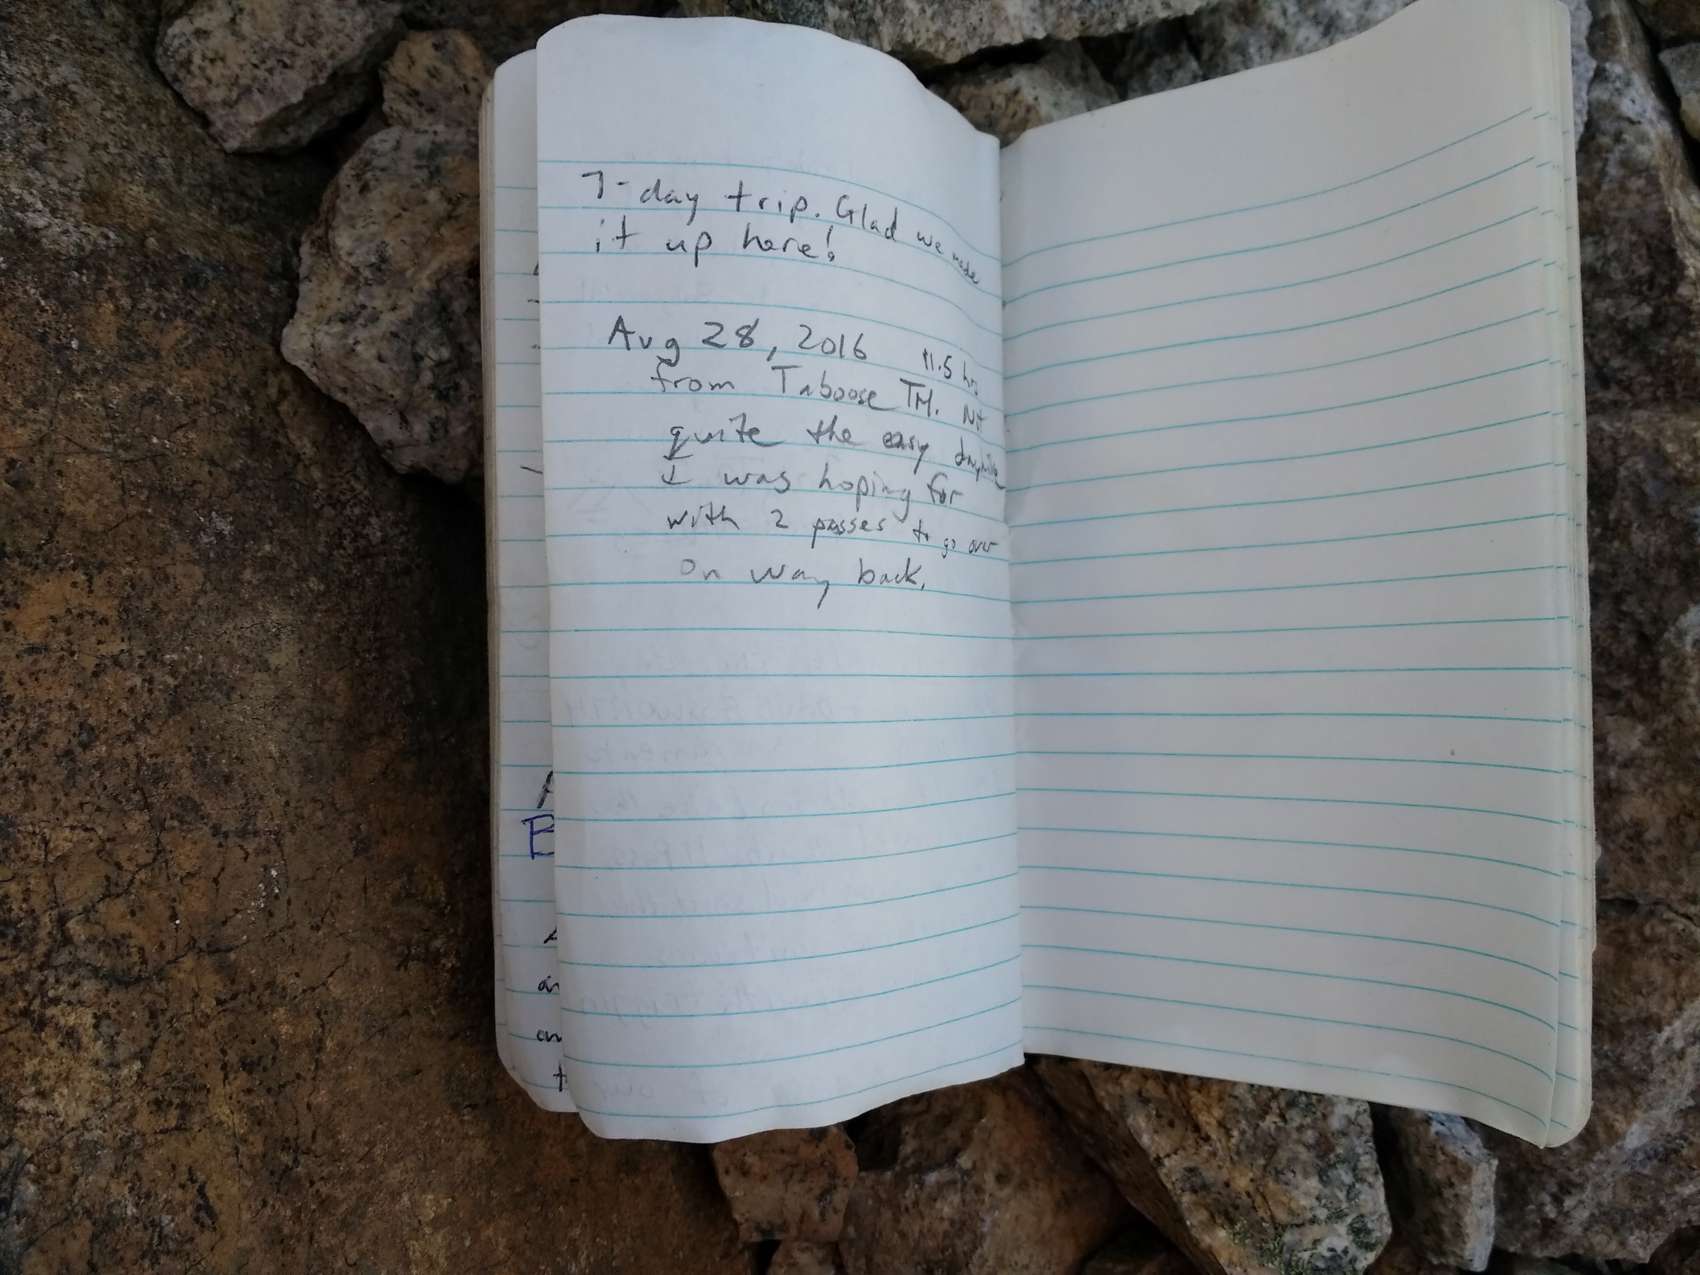 7-day trip. Glad we made
it up here!
Aug 28, 2016 11.5 hrs
from Taboose TH. Not
quite the easy dayhike
I was hoping for
with 2 passes to go over
on way back.
B
an